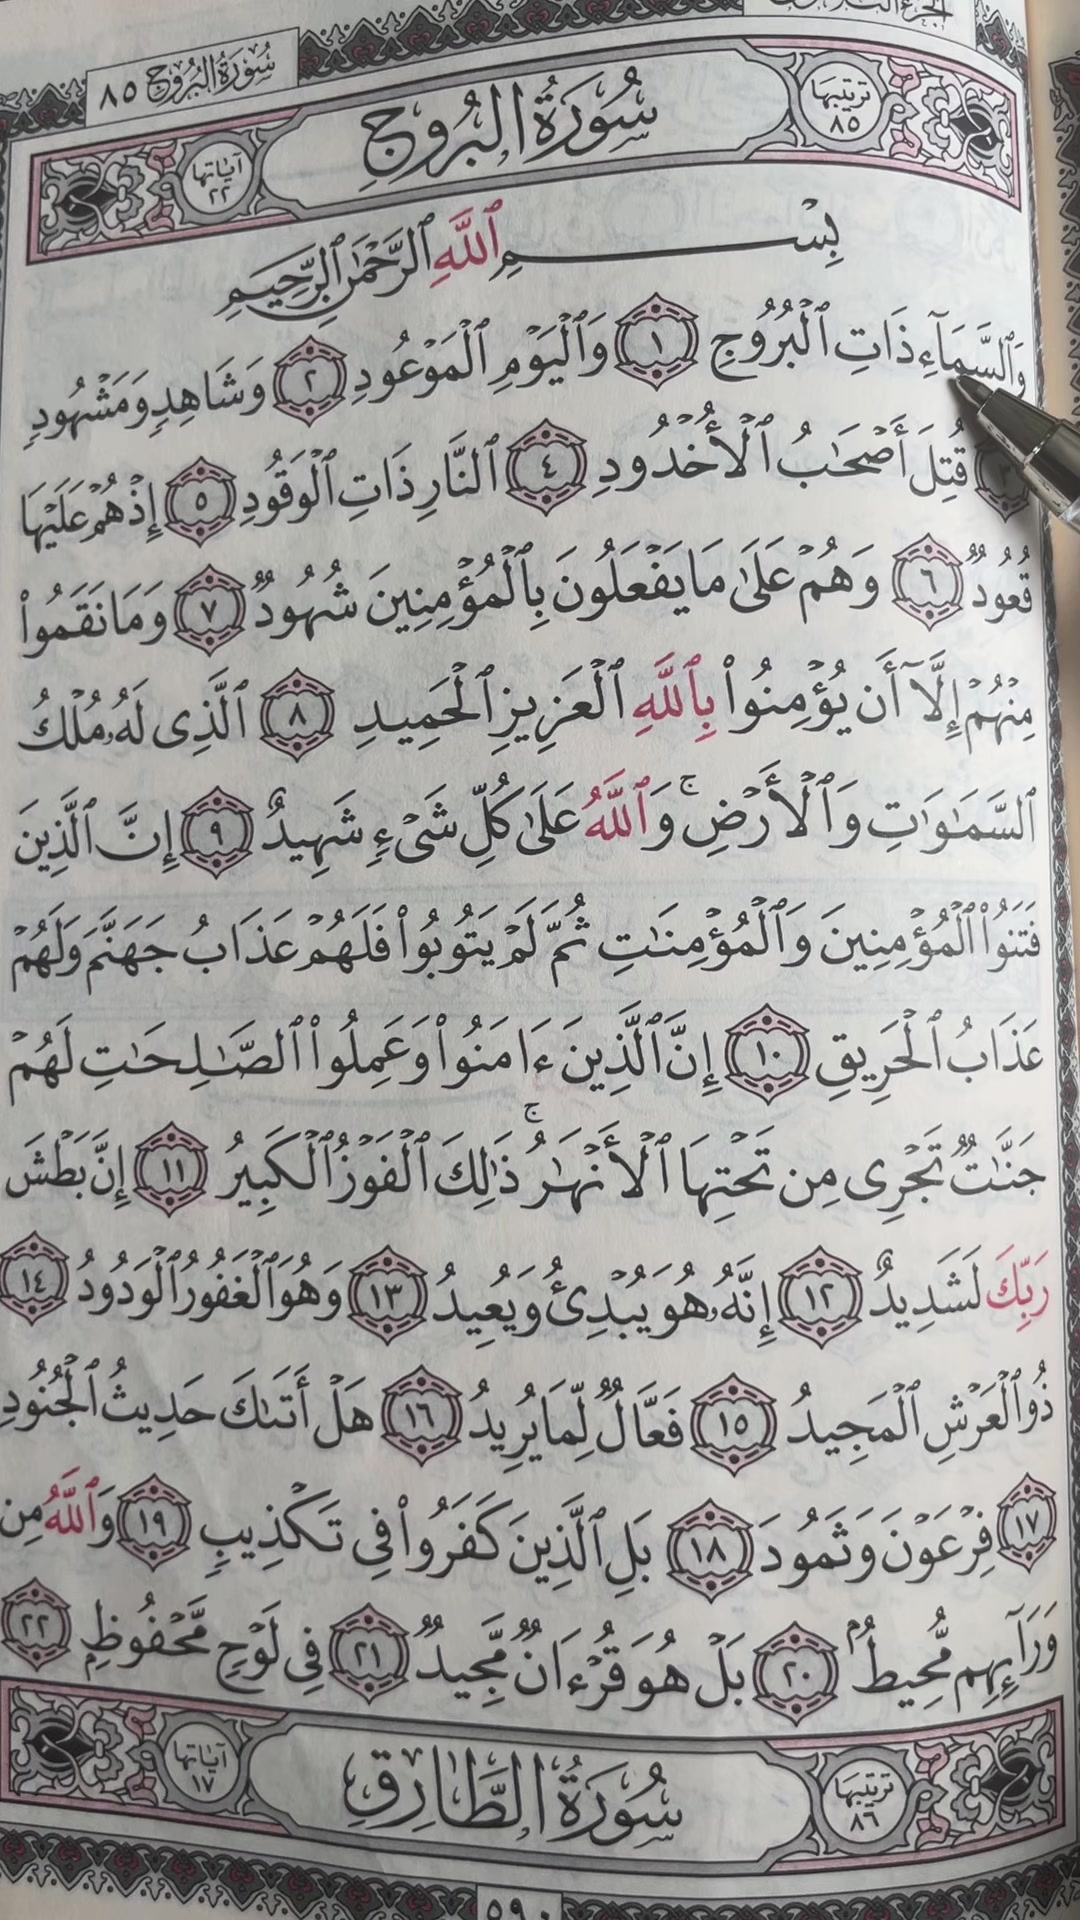 سُورَةُ البُرُوجِ ٨٥
تَرتيبُهَا ٨٥ سُورَةُ البُرُوجِ آيَاتُهَا ٢٢
بِسْمِ ٱللَّهِ ٱلرَّحْمَٰنِ ٱلرَّحِيمِ
وَٱلسَّمَآءِ ذَاتِ ٱلْبُرُوجِ ١ وَٱلْيَوْمِ ٱلْمَوْعُودِ ٢ وَشَاهِدٍ وَمَشْهُودٍ
٣ قُتِلَ أَصْحَٰبُ ٱلْأُخْدُودِ ٤ ٱلنَّارِ ذَاتِ ٱلْوَقُودِ ٥ إِذْ هُمْ عَلَيْهَا
قُعُودٌ ٦ وَهُمْ عَلَىٰ مَا يَفْعَلُونَ بِٱلْمُؤْمِنِينَ شُهُودٌ ٧ وَمَا نَقَمُوا۟
مِنْهُمْ إِلَّآ أَن يُؤْمِنُوا۟ بِٱللَّهِ ٱلْعَزِيزِ ٱلْحَمِيدِ ٨ ٱلَّذِى لَهُۥ مُلْكُ
ٱلسَّمَٰوَٰتِ وَٱلْأَرْضِ ۚ وَٱللَّهُ عَلَىٰ كُلِّ شَىْءٍ شَهِيدٌ ٩ إِنَّ ٱلَّذِينَ
فَتَنُوا۟ ٱلْمُؤْمِنِينَ وَٱلْمُؤْمِنَٰتِ ثُمَّ لَمْ يَتُوبُوا۟ فَلَهُمْ عَذَابُ جَهَنَّمَ وَلَهُمْ
عَذَابُ ٱلْحَرِيقِ ١٠ إِنَّ ٱلَّذِينَ ءَامَنُوا۟ وَعَمِلُوا۟ ٱلصَّٰلِحَٰتِ لَهُمْ
جَنَّٰتٌ تَجْرِى مِن تَحْتِهَا ٱلْأَنْهَٰرُ ۚ ذَٰلِكَ ٱلْفَوْزُ ٱلْكَبِيرُ ١١ إِنَّ بَطْشَ
رَبِّكَ لَشَدِيدٌ ١٢ إِنَّهُۥ هُوَ يُبْدِئُ وَيُعِيدُ ١٣ وَهُوَ ٱلْغَفُورُ ٱلْوَدُودُ ١٤
ذُو ٱلْعَرْشِ ٱلْمَجِيدُ ١٥ فَعَّالٌ لِّمَا يُرِيدُ ١٦ هَلْ أَتَىٰكَ حَدِيثُ ٱلْجُنُودِ
١٧ فِرْعَوْنَ وَثَمُودَ ١٨ بَلِ ٱلَّذِينَ كَفَرُوا۟ فِى تَكْذِيبٍ ١٩ وَٱللَّهُ مِن
وَرَآئِهِم مُّحِيطٌۢ ٢٠ بَلْ هُوَ قُرْءَانٌ مَّجِيدٌ ٢١ فِى لَوْحٍ مَّحْفُوظٍۭ ٢٢
تَرتيبُهَا ٨٦ سُورَةُ الطَّارِقِ آيَاتُهَا ١٧
٥٩٠